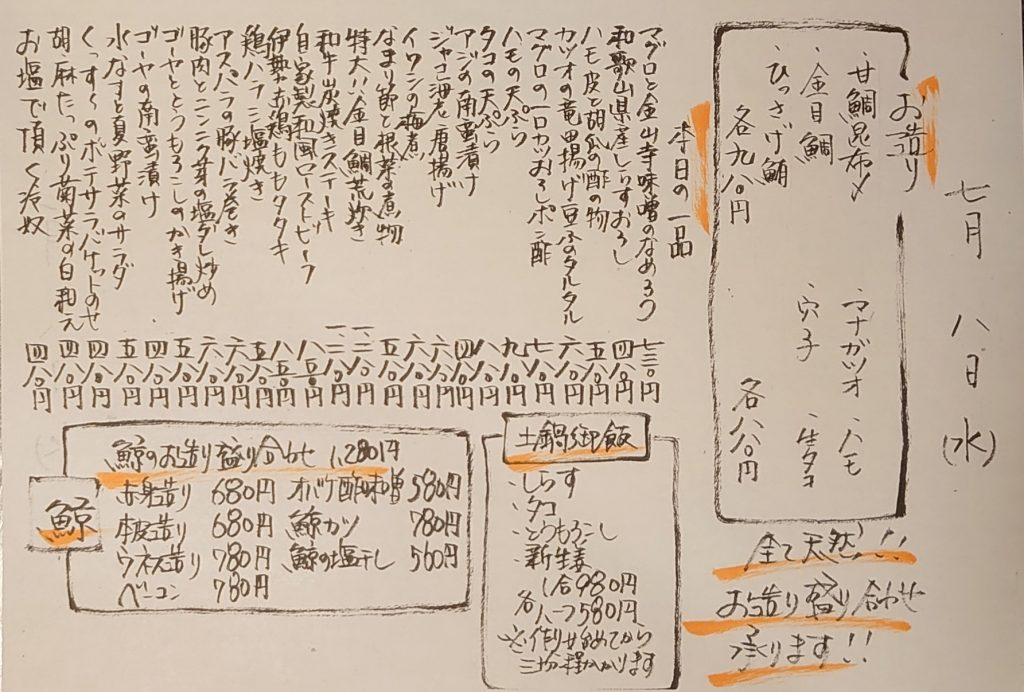 七月八日(水)
お造り
・甘鯛昆布〆
・金目鯛
・ひっさげ鮪
各九八〇円
・マナガツオ・ハモ
・穴子・生タコ
各八八〇円
全て天然!!
お造り盛り合わせ
承ります!!
本日の一品
マグロと金山寺味噌のなめろう 七三〇円
和歌山県産しらすおろし 四八〇円
ハモ皮と胡瓜の酢の物 五八〇円
カツオの竜田揚げ豆ふのタルタル 六八〇円
マグロの一口カツおろしポン酢 七八〇円
ハモの天ぷら 九八〇円
タコの天ぷら 八八〇円
アジの南蛮漬け 四八〇円
ジャコ海老唐揚げ 六八〇円
イワシの梅煮 六八〇円
なまり節と根菜の煮物 五八〇円
特大!!金目鯛荒炊き
和牛炭焼きステーキ
自家製和風ローストビーフ 八八〇円
伊勢赤鶏ももタタキ 八五〇円
鶏ハラミ塩焼き 五八〇円
アスパラの豚バラ巻き 六八〇円
豚肉とニンニク芽の塩ダレ炒め 六八〇円
ゴーヤととうもろこしのかき揚げ 五八〇円
ゴーヤの南蛮漬け 四八〇円
水なすと夏野菜のサラダ 五八〇円
くんすものポテサラバケットのせ 四八〇円
胡麻たっぷり菊菜の白和え 四八〇円
お塩で頂く冷奴 四八〇円
土鍋御飯
・しらす
・タコ
・とうもろこし
・新生姜
各
1合980円
ハーフ580円
※作り始めてから
三十分程かかります
鯨
鯨のお造り盛り合わせ 1,280円
赤身造り 680円 オバケ酢味噌 580円
本皮造り 680円 鯨カツ 780円
ウネス造り 780円 鯨の塩干し 560円
ベーコン 780円